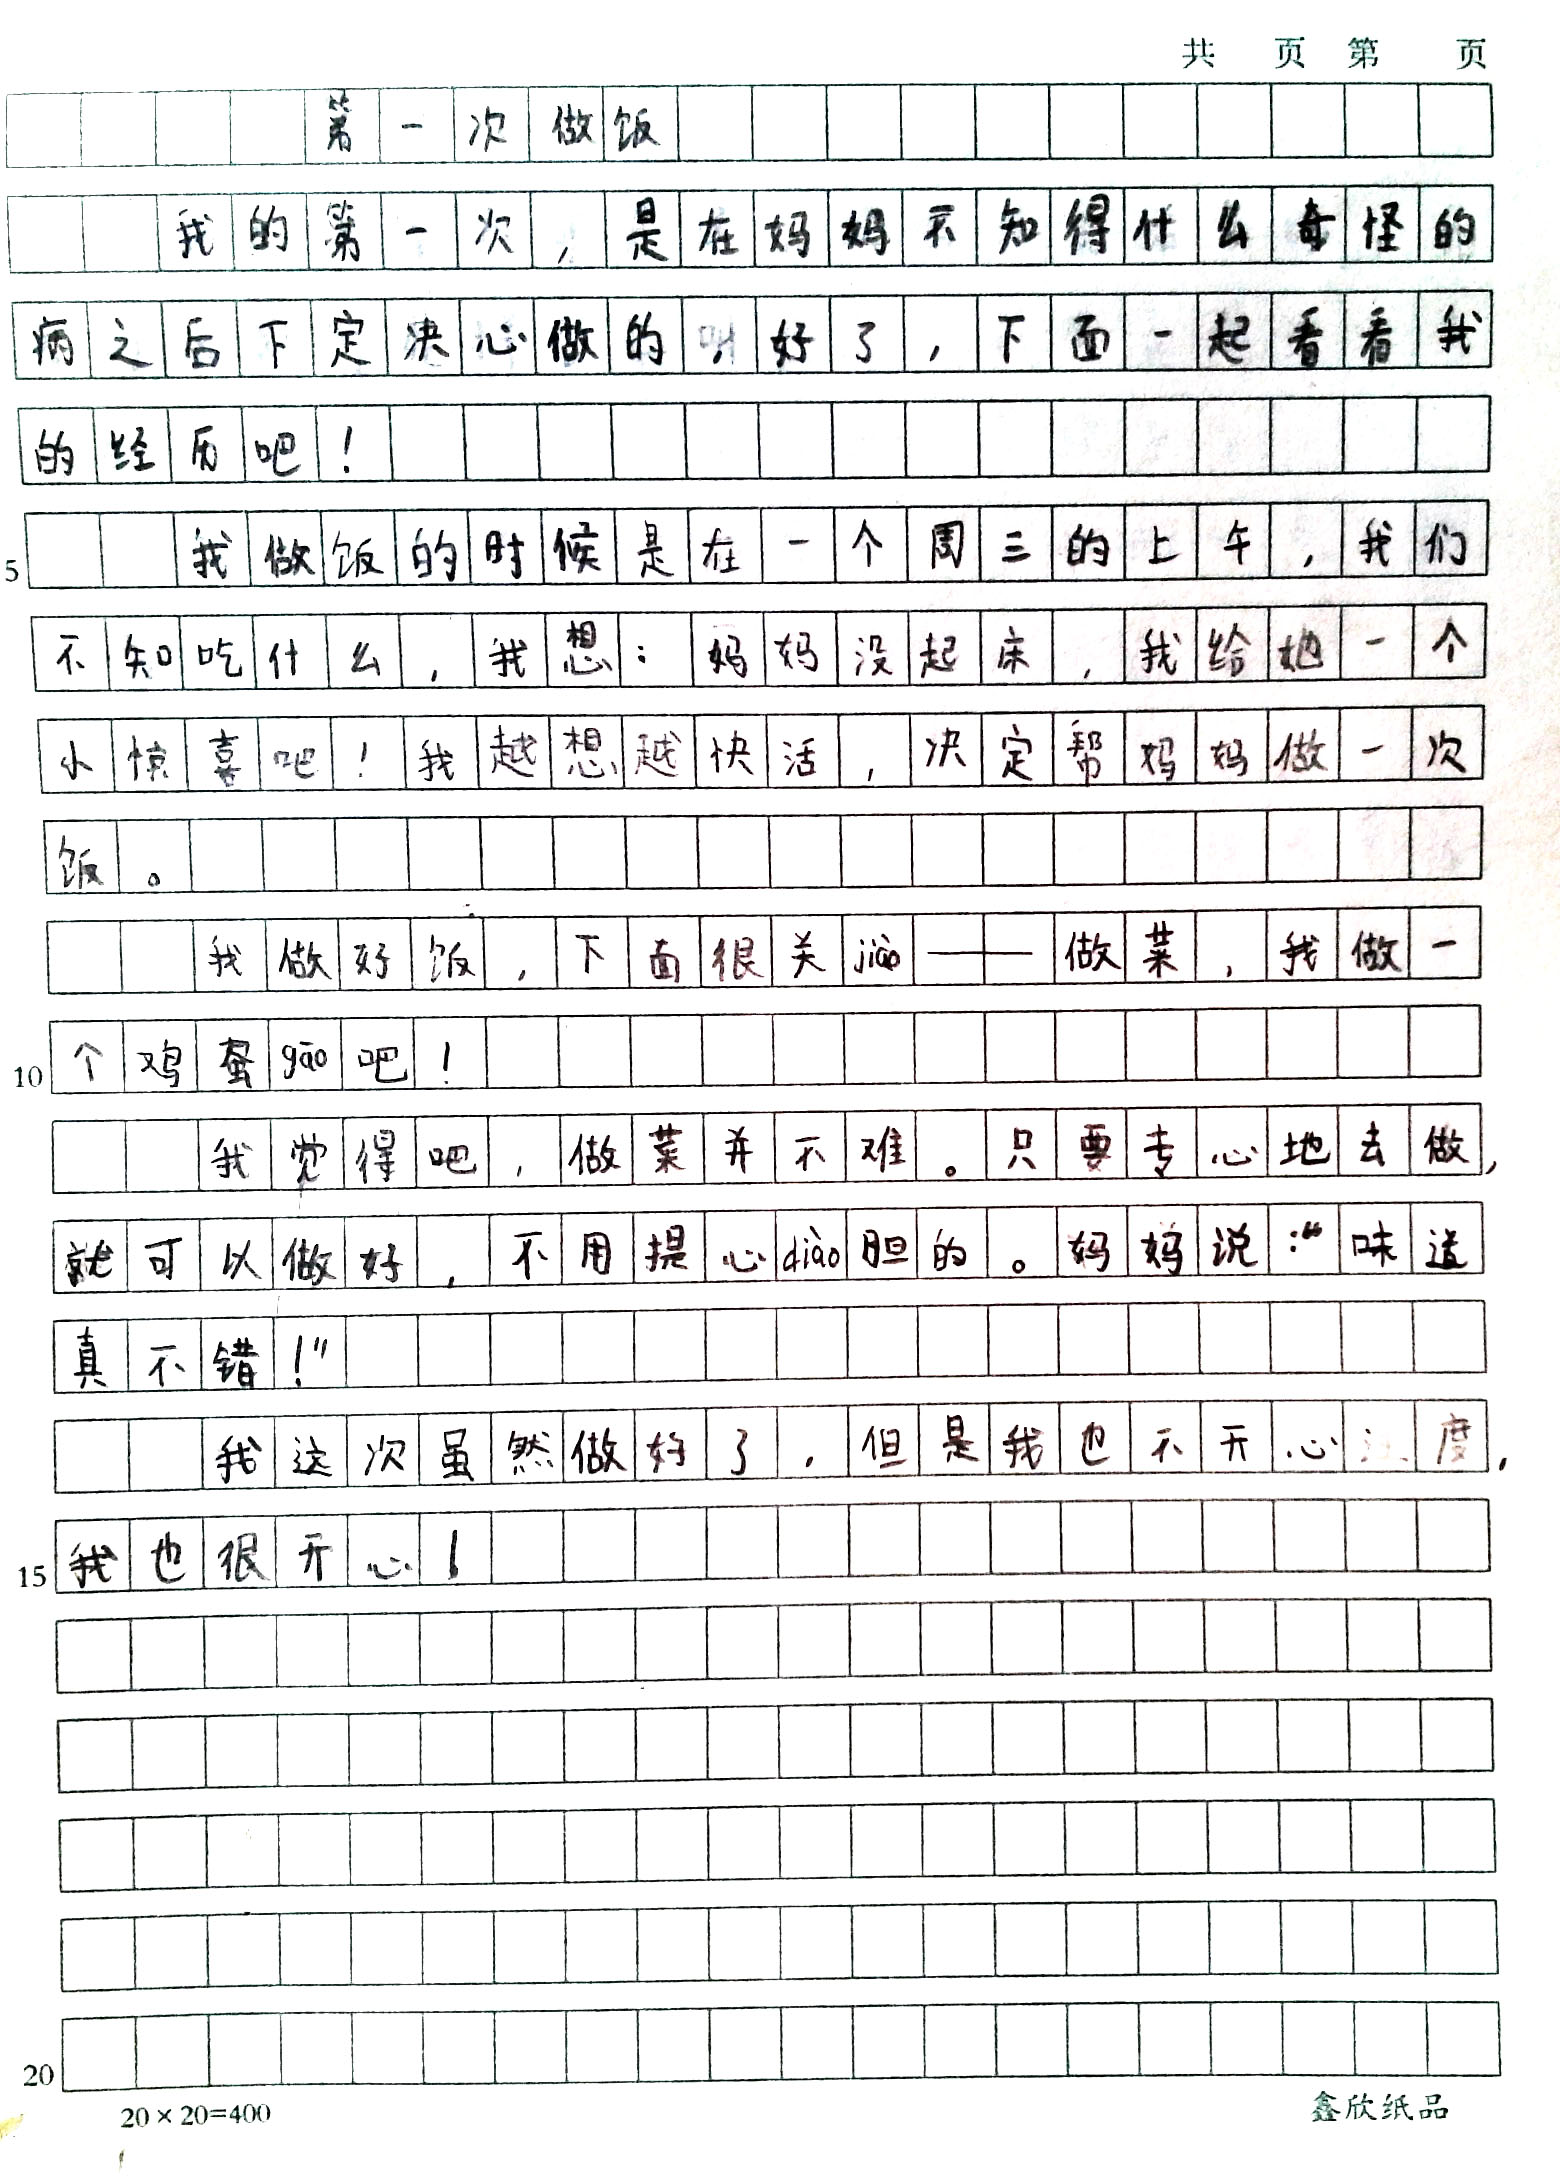 共 页 第 页
第一次做饭
我的第一次，是在妈妈不知得什么奇怪的
病之后下定决心做的，好了，下面一起看看我
的经历吧！
5 我做饭的时候是在一个周三的上午，我们
不知吃什么，我想：妈妈没起床，我给她一个
小惊喜吧！我越想越快活，决定帮妈妈做一次
饭。
我做好饭，下面很关jiàn——做菜，我做一
10 个鸡蛋gāo吧！
我觉得吧，做菜并不难。只要专心地去做，
就可以做好，不用提心diào胆的。妈妈说：“味道
真不错！”
我这次虽然做好了，但是我也不开心过度，
15 我也很开心！
20
20×20=400 鑫欣纸品